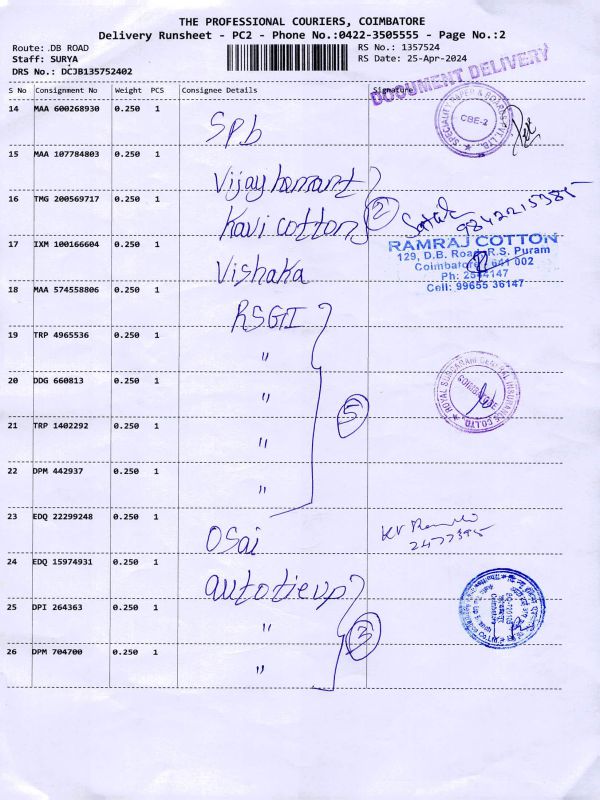 THE PROFESSIONAL COURIERS, COIMBATORE
Delivery Runsheet - PC2 - Phone No.:0422-3505555 - Page No.:2
Route: .DB ROAD
Staff: SURYA
DRS No.: DCJB135752402
RS No.: 1357524
RS Date: 25-Apr-2024
DOCUMENT DELIVERY
S No Consignment No Weight PCS Consignee Details Signature
14 MAA 600268930 0.250 1 SPb
SPECIALITY PAPER & BOARDS PVT LTD.
CBE-2
15 MAA 107784803 0.250 1 Vijay hemant
16 TMG 200569717 0.250 1 Kavi cotton
2
9842215385
17 IXM 100166604 0.250 1 Vishaka
RAMRAJ COTTON
129, D.B. Road, R.S. Puram
Coimbatore 641 002
Ph: 2544147
Cell: 99655 36147
18 MAA 574558806 0.250 1 RSGII
19 TRP 4965536 0.250 1 "
20 DDG 660813 0.250 1 "
5
ROYAL SUNDARAM GENERAL INSURANCE CO.LTD.
COIMBATORE
21 TRP 1402292 0.250 1 "
22 DPM 442937 0.250 1 "
23 EDQ 22299248 0.250 1 Osai
2477395
24 EDQ 15974931 0.250 1 autotieup
25 DPI 264363 0.250 1 "
3
26 DPM 704700 0.250 1 "